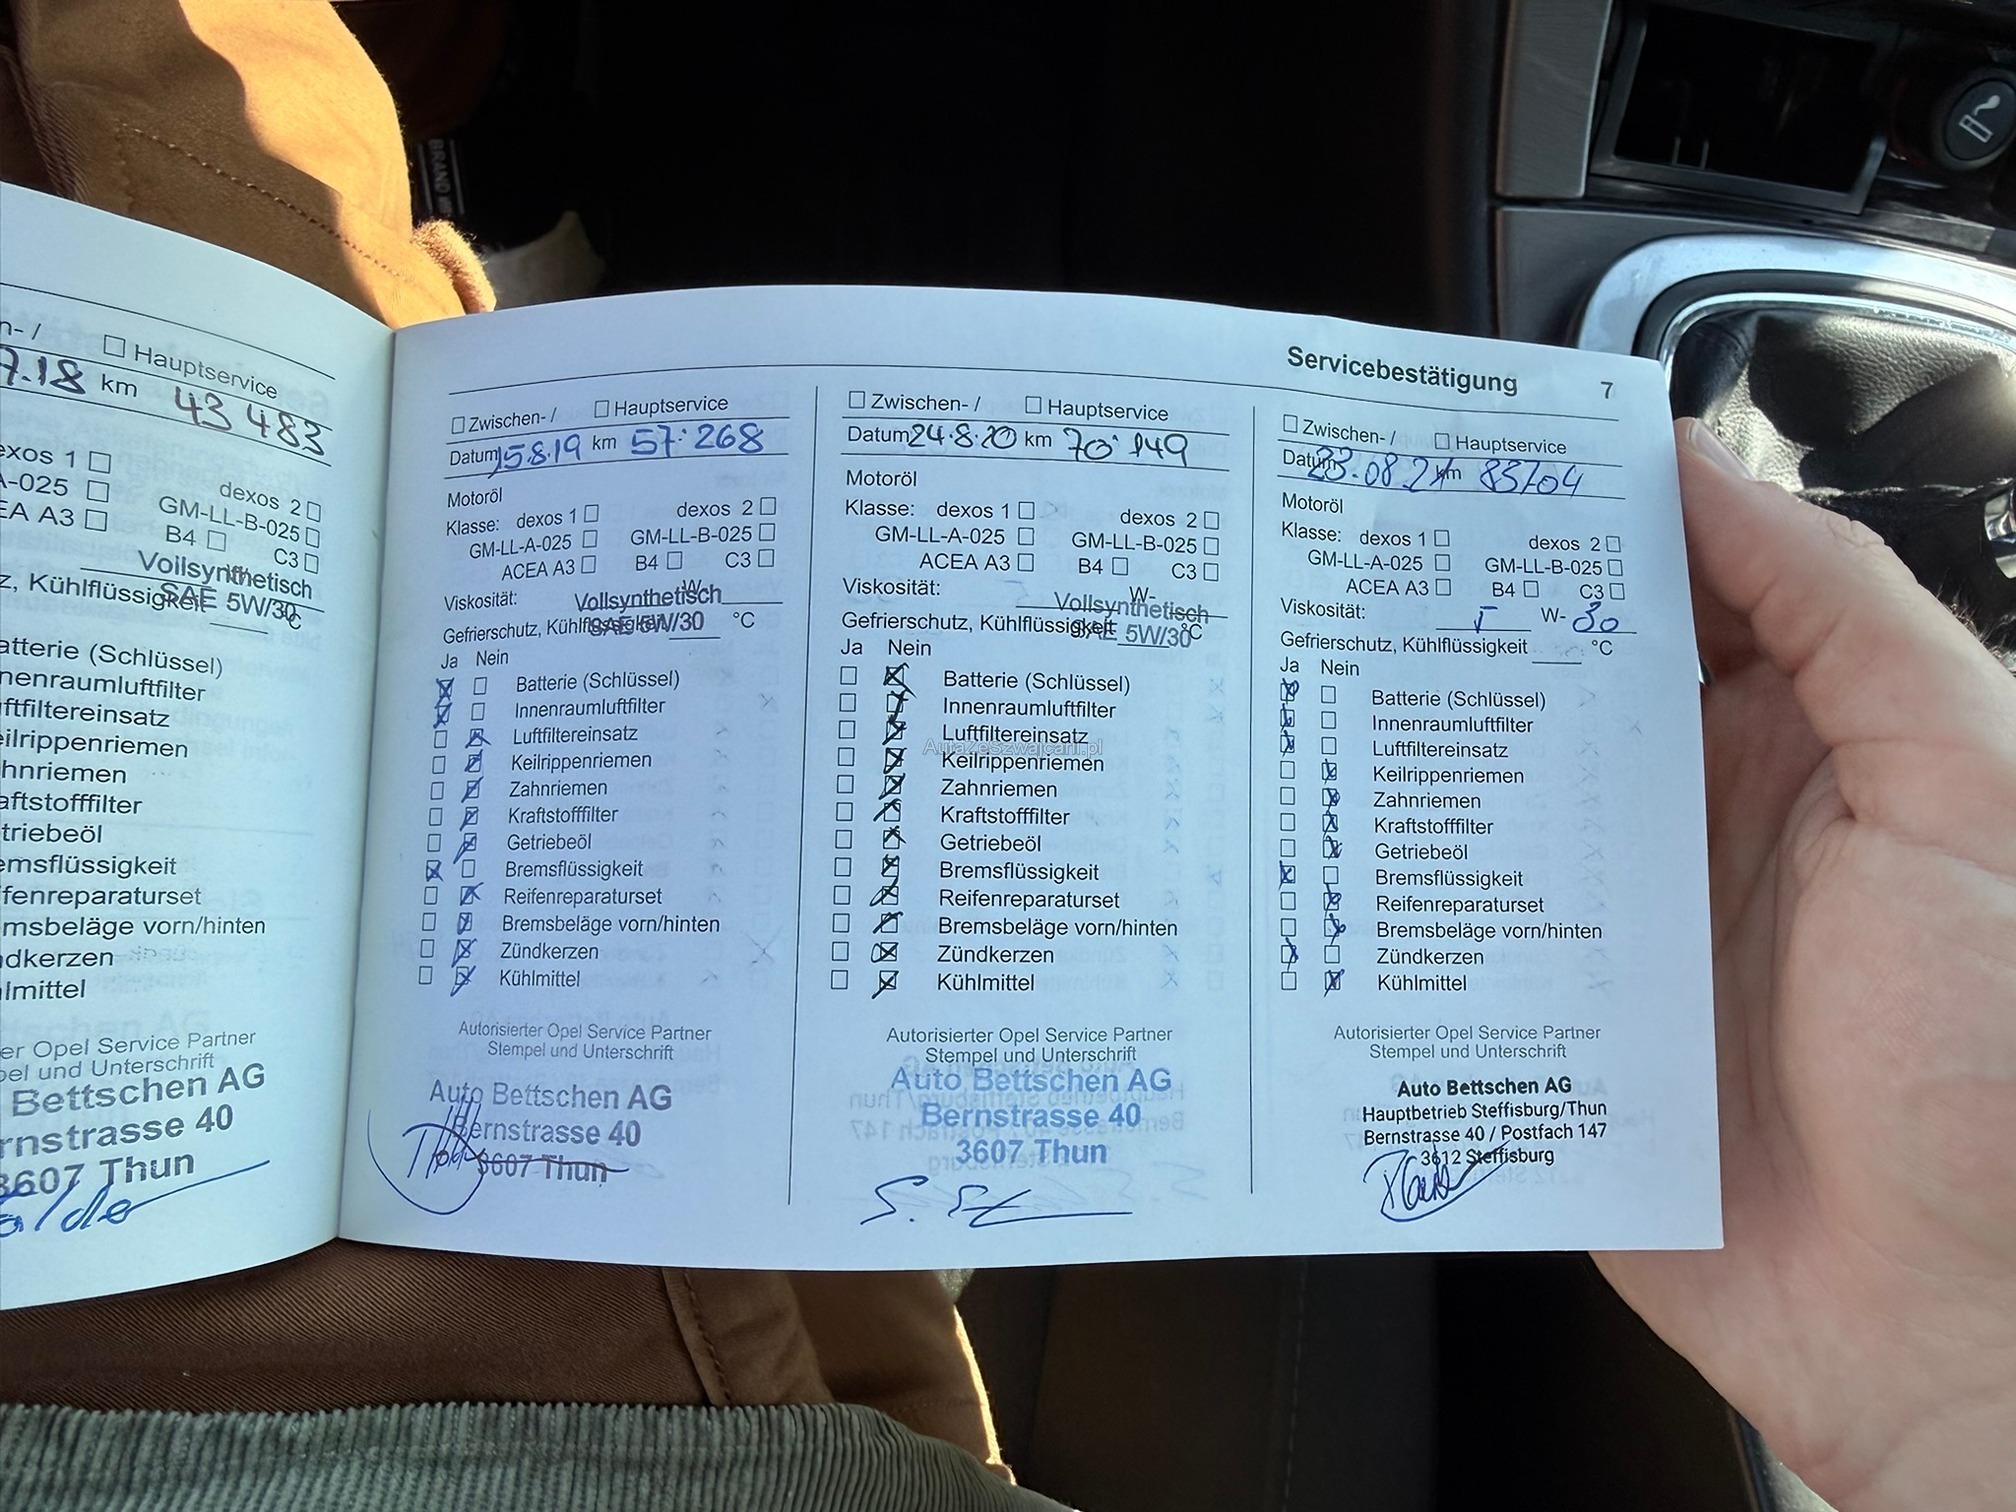 n- /
Hauptservice
7.18 km 43 483
exos 1
dexos 2
A-025
GM-LL-B-025
EA A3
B4
C3
Vollsynthetisch
SAE 5W/30
z, Kühlflüssigkeit
°C
atterie (Schlüssel)
nenraumluftfilter
uftfiltereinsatz
eilrippenriemen
ahnriemen
aftstofffilter
triebeöl
emsflüssigkeit
ifenreparaturset
msbeläge vorn/hinten
ndkerzen
hlmittel
er Opel Service Partner
pel und Unterschrift
Bettschen AG
rnstrasse 40
3607 Thun
Servicebestätigung 7
Zwischen- / Hauptservice
Datum 15.8.19 km 57'268
Motoröl
Klasse: dexos 1 dexos 2
GM-LL-A-025 GM-LL-B-025
ACEA A3 B4 C3
Viskosität: W-
Vollsynthetisch
SAE 5W/30
Gefrierschutz, Kühlflüssigkeit °C
Ja Nein
Batterie (Schlüssel)
Innenraumluftfilter
Luftfiltereinsatz
Keilrippenriemen
Zahnriemen
Kraftstofffilter
Getriebeöl
Bremsflüssigkeit
Reifenreparaturset
Bremsbeläge vorn/hinten
Zündkerzen
Kühlmittel
Autorisierter Opel Service Partner
Stempel und Unterschrift
Auto Bettschen AG
Bernstrasse 40
3607 Thun
Zwischen- / Hauptservice
Datum 24.8.20 km 70'149
Motoröl
Klasse: dexos 1 dexos 2
GM-LL-A-025 GM-LL-B-025
ACEA A3 B4 C3
Viskosität: W-
Vollsynthetisch
SAE 5W/30
Gefrierschutz, Kühlflüssigkeit °C
Ja Nein
Batterie (Schlüssel)
Innenraumluftfilter
Luftfiltereinsatz
AutaZeSzwajcarii.pl
Keilrippenriemen
Zahnriemen
Kraftstofffilter
Getriebeöl
Bremsflüssigkeit
Reifenreparaturset
Bremsbeläge vorn/hinten
Zündkerzen
Kühlmittel
Autorisierter Opel Service Partner
Stempel und Unterschrift
Auto Bettschen AG
Bernstrasse 40
3607 Thun
Zwischen- / Hauptservice
Datum 23.08.21 km
Motoröl
Klasse: dexos 1 dexos 2
GM-LL-A-025 GM-LL-B-025
ACEA A3 B4 C3
Viskosität: 5 W- 30
Gefrierschutz, Kühlflüssigkeit °C
Ja Nein
Batterie (Schlüssel)
Innenraumluftfilter
Luftfiltereinsatz
Keilrippenriemen
Zahnriemen
Kraftstofffilter
Getriebeöl
Bremsflüssigkeit
Reifenreparaturset
Bremsbeläge vorn/hinten
Zündkerzen
Kühlmittel
Autorisierter Opel Service Partner
Stempel und Unterschrift
Auto Bettschen AG
Hauptbetrieb Steffisburg/Thun
Bernstrasse 40 / Postfach 147
3612 Steffisburg